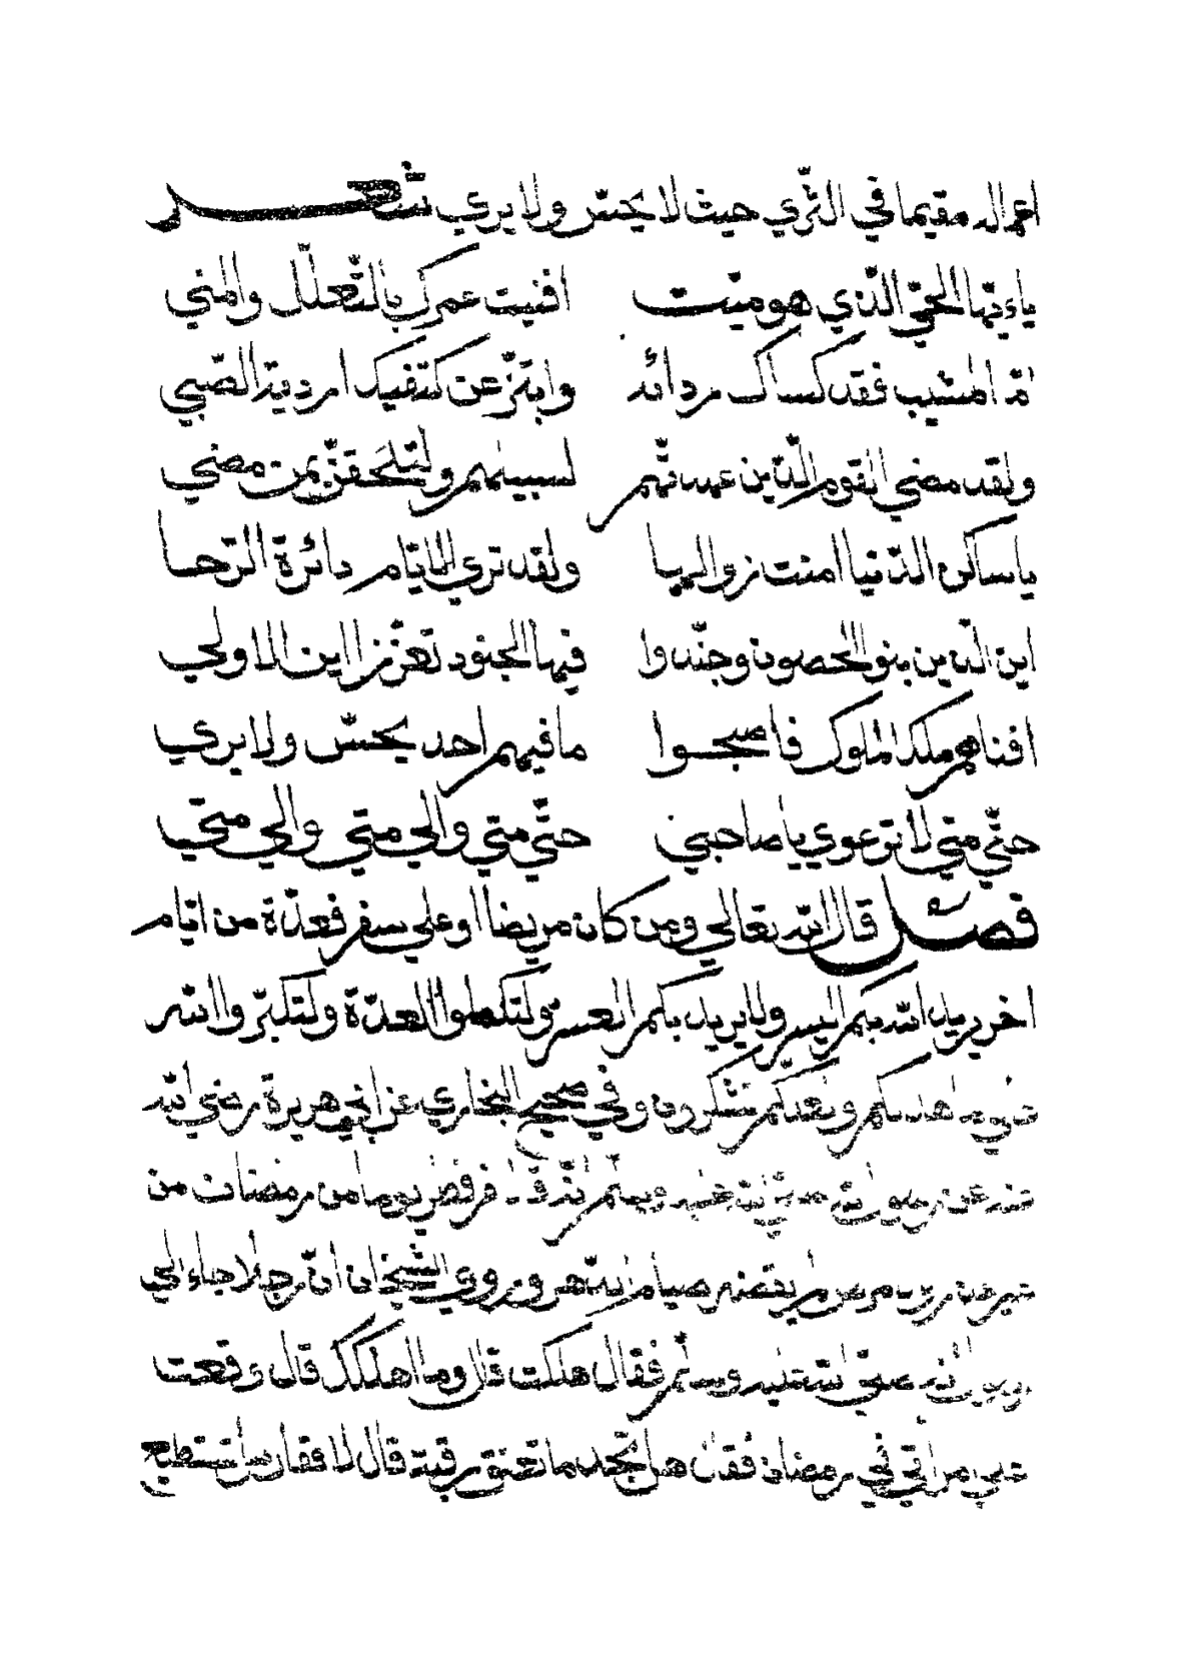 اعماله مقيما في الثّري حيث لا يحسّ ولا يري شعر
يا ءيّها الحيّ الّذي هو ميّت افنيت عمرك بالتّعلّل والمني
امّا المشيب فقد كساك ردائه وابتزّ عن كتفيك اردية الصّبي
ولقد مضي القوم الّذين عهدتّهم لسبيلهم ولتلحقنّ بمن مضي
يا ساكن الدّنيا امنت زوالها ولقد تري الايّام دائرة الرّحا
اين الّذين بنوا الحصون وجنّدوا فيها الجنود تعزّزا اين الاولي
افناهم ملك الملوك فاصبحوا ما فيهم احد يحسّ ولا يري
حتّي متي لا ترعوي يا صاحبي حتّي متي والي متي والي متي
فصل قال الله تعالي ومن كان مريضا او علي سفر فعدّة من ايّام
اخر يريد الله بكم اليسر ولا يريد بكم العسر ولتكملوا العدّة ولتكبّروا الله
علي ما هداكم ولعلكم تشكرون وفي صحيح البخاري عن ابي هريرة رضي الله
عنه عن رسول الله صلي الله عليه وسلّم انّه قال من افطر يوما من رمضان من
غير عذر ولا مرض لم يقضه صيام الدّهر وروي الشّيخان انّ رجلا جاء الي
رسول الله صلّي الله عليه وسلّم فقال هلكت قال وما اهلكك قال وقعت
علي امراتي في رمضان فقال هل تجد ما تعتق رقبة قال لا فقال هل تستطيع